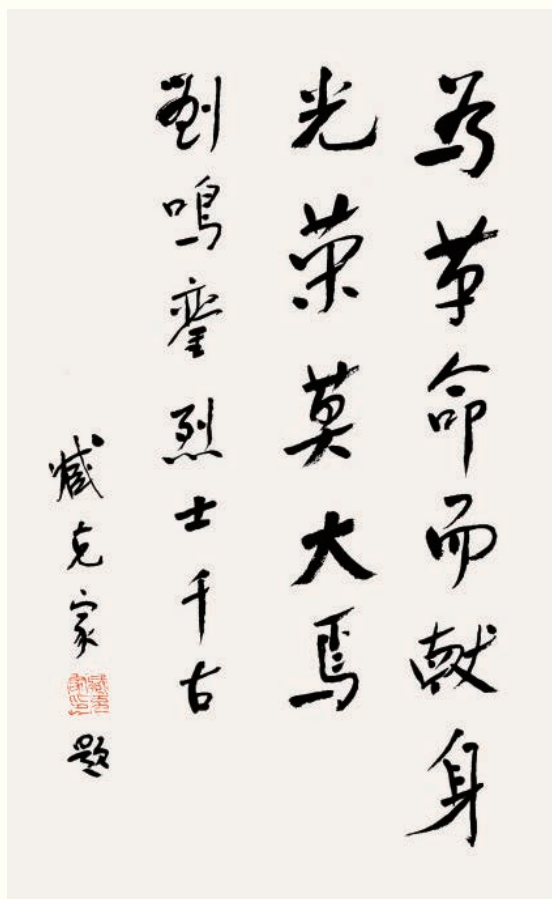 為革命而献身
光荣莫大焉
劉鸣銮烈士千古
臧克家题